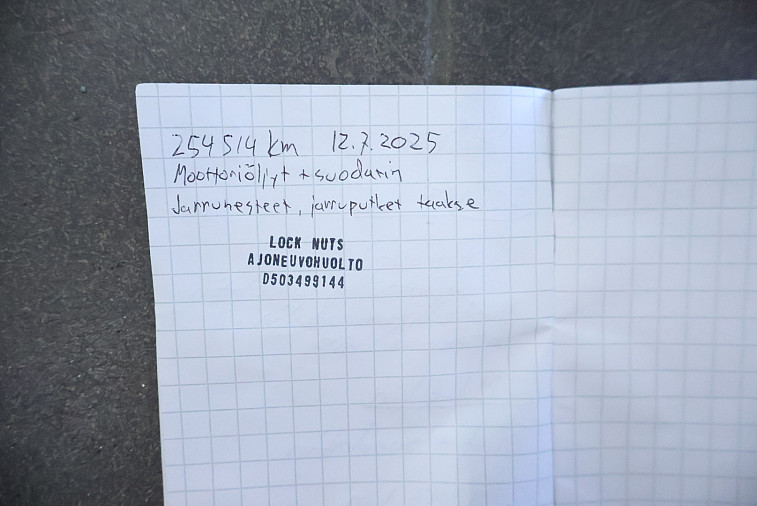 254 514 km 12.7.2025
Moottoriöljyt + suodatin
Jarrunesteet, jarruputket taakse
LOCK NUTS
AJONEUVOHUOLTO
0503499144